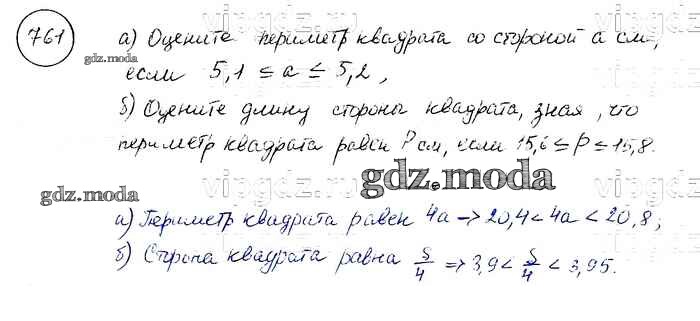 761
а) Оцените периметр квадрата со стороной а см,
если 5,1 ≤ a ≤ 5,2,
б) Оцените длину стороны квадрата, зная, что
периметр квадрата равен P см, если 15,6 ≤ P ≤ 15,8.
а) Периметр квадрата равен 4a → 20,4 < 4a < 20,8;
б) Сторона квадрата равна S/4 ⇒ 3,9 < S/4 < 3,95.
gdz.moda
gdz.moda
gdz.moda